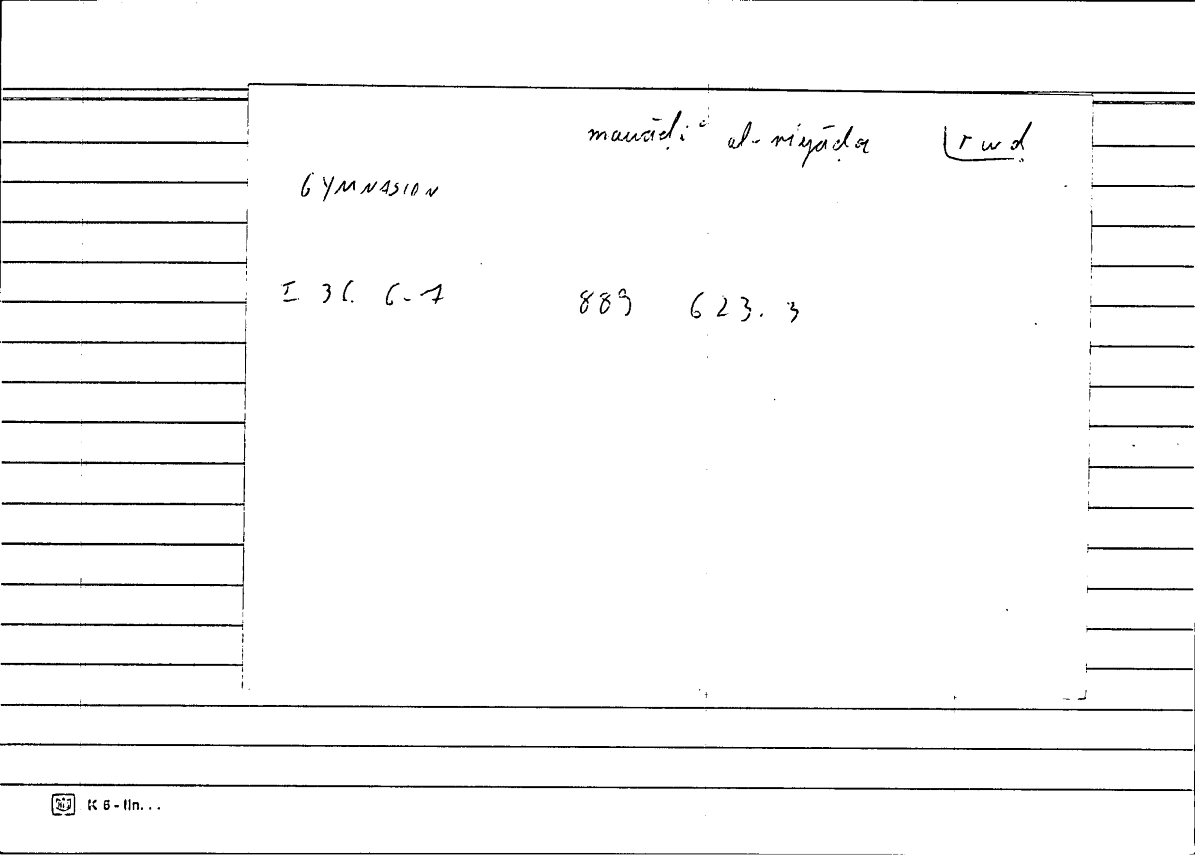 mawāḍiʿ al-riyāḍa rwḍ
GYMNASION
I 36. 6-7 889 623. 3